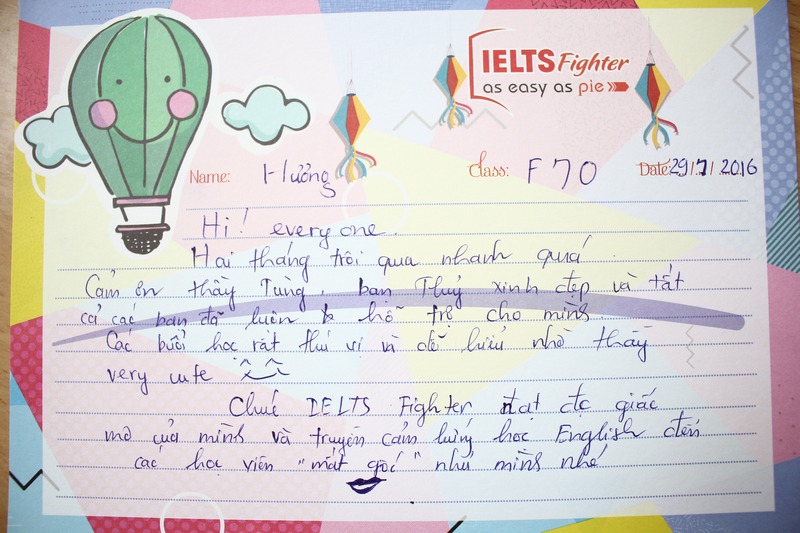 IELTS Fighter
as easy as pie
Name: Hường Class: F70 Date: 29/7/2016
Hi! every one.
Hai tháng trôi qua nhanh quá
Cảm ơn thầy Tùng, bạn Thuỷ xinh đẹp và tất
cả các bạn đã luôn hỗ trợ cho mình
Các buổi học rất thú vị và dễ hiểu nhờ thầy
very cute
Chúc IELTS Fighter đạt đc giấc
mơ của mình và truyền cảm hứng học English đến
các học viên "mất gốc" như mình nhé